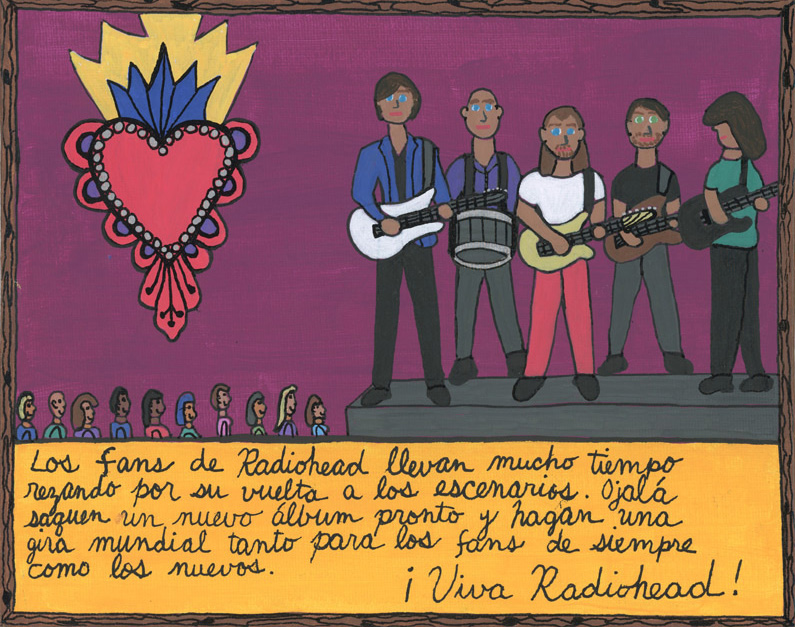 Los fans de Radiohead llevan mucho tiempo
rezando por su vuelta a los escenarios. Ojalá
saquen un nuevo álbum pronto y hagan una
gira mundial tanto para los fans de siempre
como los nuevos.
¡Viva Radiohead!